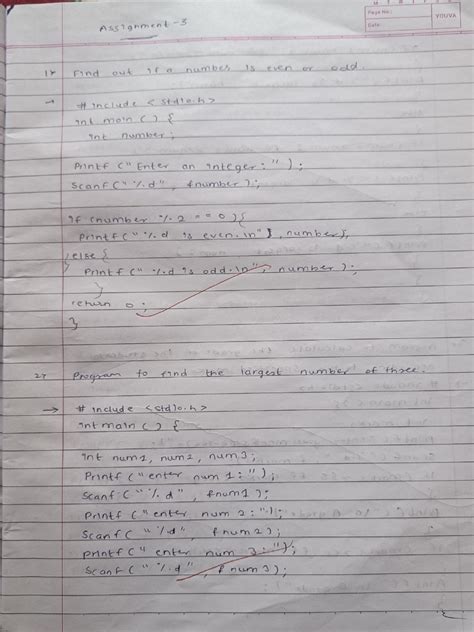 Page No.:
Date:
YOUVA
Assignment - 3
1) Find out if a number is even or odd.
→ # include < stdio.h>
int main ( ) {
int number;
Printf (" Enter an integer : " );
Scanf (" %d" , &number );
if (number % 2 == 0) {
Printf (" %d is even.\n" ), number);
} else {
Printf (" %d is odd.\n", number );
}
return 0 ;
}
2) Program to find the largest number of three.
→ # include <stdio.h>
int main ( ) {
int num1, num2, num3;
Printf ("enter num 1: ");
Scanf (" %d " , &num1 );
Printf (" enter num 2 : " );
Scanf ( " %d" , &num2 );
printf (" enter num 3 : " );
Scanf ( " %d " , &num3 );